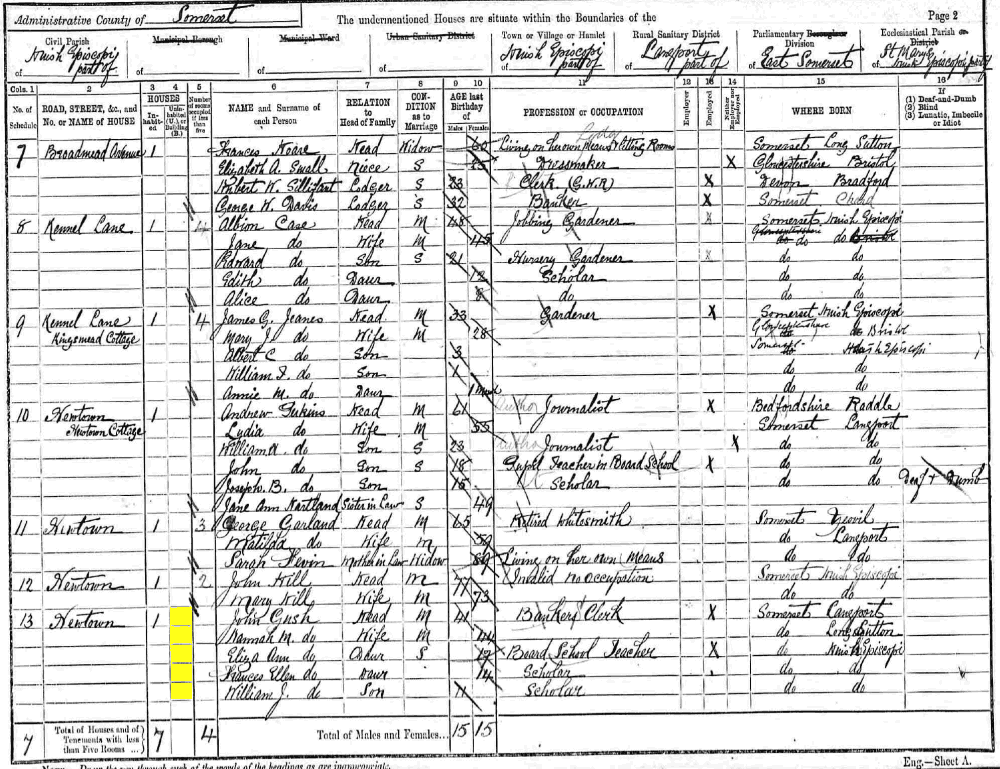 Administrative County of Somerset The undermentioned Houses are situate within the Boundaries of the Page 2
Civil Parish Municipal Borough Municipal Ward Urban Sanitary District Town or Village or Hamlet Rural Sanitary District Parliamentary Borough or Division Ecclesiastical Parish or District
of Huish Episcopi part of of of of of Huish Episcopi part of of Langport part of of East Somerset of St Mary's Huish Episcopi part of
Cols. 1 2 3 4 5 6 7 8 9 10 11 12 13 14 15 16
No. of Schedule ROAD, STREET, &c., and No. or NAME of HOUSE HOUSES Inhabited Uninhabited (U.), or Building (B.) Number of rooms occupied if less than five NAME and Surname of each Person RELATION to Head of Family CONDITION as to Marriage AGE last Birthday of Males Females PROFESSION or OCCUPATION Employer Employed Neither Employer nor Employed WHERE BORN If (1) Deaf-and-Dumb (2) Blind (3) Lunatic, Imbecile or Idiot
7 Broadmead Avenue 1 Frances Hoare Head Widow 60 Living on her own Means Letting Rooms Somerset Long Sutton
Elizabeth A. Small Niece S 25 Dressmaker X Gloucestershire Bristol
Hubert W. Gillifant Lodger S 23 Clerk (G.W.R) X Devon Bradford
George W. Davis Lodger S 32 Banker X Somerset Chard
8 Kennel Lane 1 4 Albion Case Head M 48 Jobbing Gardener X Somerset Huish Episcopi
Jane do Wife M 45 Gloucestershire do do do Bristol
Edward do Son S 21 Nursery Gardener X do do
Edith do Daur 12 Scholar do do
Alice do Daur 8 do do do
9 Kennel Lane 1 4 James G. Jeanes Head M 33 Gardener X Somerset Huish Episcopi
Kingsmead Cottage Mary J. do Wife M 28 Gloucestershire do Bristol
Albert C do Son 3 Somerset do Huish Episcopi
William F. do Son 1 do do
Annie M. do Daur 1 Month do do
10 Newtown 1 Andrew Jukins Head M 61 Author Journalist X Bedfordshire Raddle
Newtown Cottage Lydia do Wife M 55 Somerset Langport
William A. do Son S 23 Author Journalist X do do
John do Son S 18 Pupil Teacher in Board School X do do
Joseph B. do Son 15 Scholar do do Deaf + Dumb
Jane Ann Hartland Sister in Law S 49
11 Newtown 1 3 George Garland Head M 65 Retired Whitesmith Somerset Yeovil
Matilda do Wife M 59 do Langport
Sarah Mother in Law Widow 89 Living on her own Means do do
12 Newtown 1 2 John Hill Head M 77 Invalid no occupation Somerset Huish Episcopi
Mary Hill Wife M 73 do do
13 Newtown 1 John Gush Head M 41 Bankers Clerk X Somerset Langport
Hannah M. do Wife M 44 do Long Sutton
Eliza Ann do Daur S 17 Board School Teacher X do Huish Episcopi
Frances Ellen do Daur 14 Scholar do do
William J. do Son 11 Scholar do do
7 Total of Houses and of Tenements with less than Five Rooms ... 7 4 Total of Males and Females... 15 15
Note.—Draw the pen through such of the words of the headings as are inappropriate. Eng.—Sheet A.